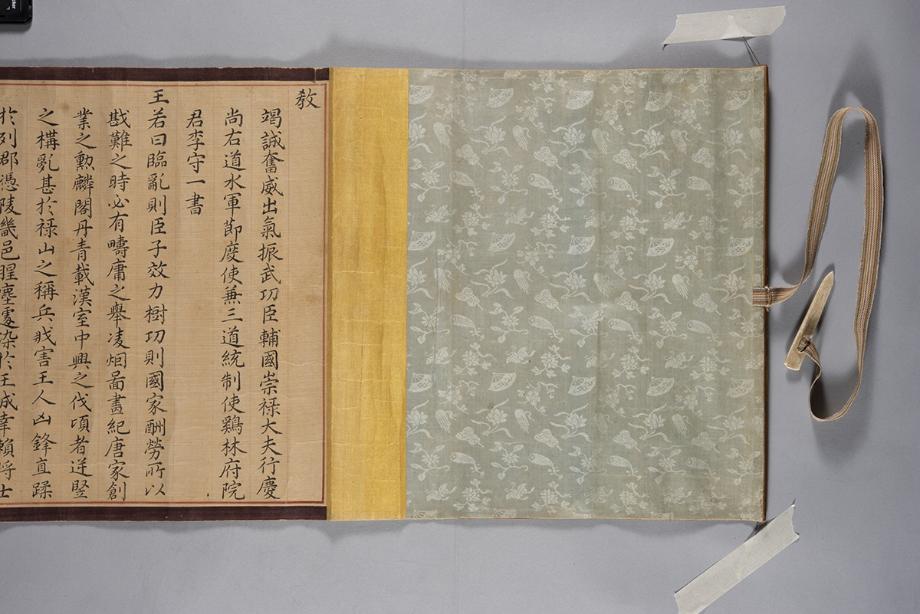 教
竭誠奮威出氣振武功臣輔國崇禄大夫行慶
尚右道水軍節度使兼三道統制使鷄林府院
君李守一書
王若曰臨亂則臣子效力樹功則國家酬勞所以
戡難之時必有疇庸之擧凌烟啚畫紀唐家創
業之勲麟閣丹青載漢室中興之伐頃者逆竪
之構亂甚於禄山之稱兵戕害王人凶鋒直蹂
於列郡憑陵畿邑腥塵處染於王成幸賴將士